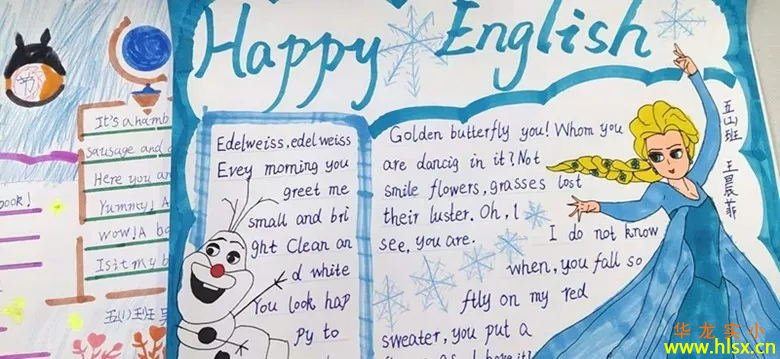 Happy English
It's a hamb
sausage and
Here you ar
Yummy! A
wow! A ba
Is it my b
ook!
Edelweiss, edelweiss
Evey morning you
greet me
small and bri
ght Clean an
d white
You look hap
py to
Golden butterfly you! Whom you
are dancig in it? Not
smile flowers, grasses lost
their luster. Oh, I
see, you are.
I do not know
when, you fall so
ftly on my red
sweater, you put a
五(1)班
王晨菲
华龙实小
www.hlsx.cn